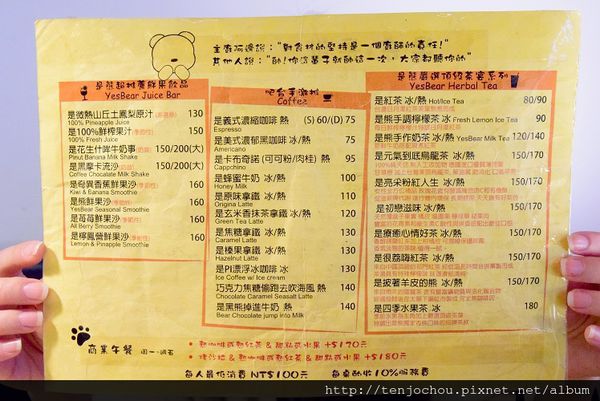 主廚阿邊說："對食材的堅持是一個廚師的責任!"
其他人說："帥!你這輩子就帥這一次，大家都聽你的"
是熊超推薦鮮果飲品
YesBear Juice Bar
是微熱山丘土鳳梨原汁 130
100% Pineapple Juice
是100%鮮榨果汁 150
100% Fresh Juice
是花生什哞牛奶事 150/200(大)
Pinut Banana Milk Shake
是黑摩卡流沙 150/200(大)
Coffee Chocolate Milk Shake
是奇異香蕉鮮果沙 160
Kiwi & Banana Smoothie
是熊鮮果沙 160
YesBear Seasonal Smoothie
是莓莓鮮果沙 160
All Berry Smoothie
是檸鳳螢鮮果沙 160
Lemon & Pinapple Smoothie
吧台手激推
Coffee
是義式濃縮咖啡 熱 (S) 60/(D) 75
Espresso
是美式濃郁黑咖啡 熱 75
Americano
是卡布奇諾 (可可粉/肉桂) 熱 95
Cappchino
是蜂蜜牛奶 冰/熱 110
Honey Milk
是原味拿鐵 冰/熱 110
Origina Latte
是玄米香抹茶拿鐵 冰/熱 120
Green Tea Latte
是焦糖拿鐵 冰/熱 130
Caramel Latte
是榛果拿鐵 冰/熱 130
Hazelnut Latte
是PI漂浮冰咖啡 冰 130
Ice Coffee w/ Ice cream
巧克力焦糖偷跑去吹海風 熱 140
Chocolate Caramel Seasalt Latte
是黑熊掉進牛奶 熱 140
Bear Chocolate jump into Milk
是熊嚴選頂級茶宴系列
YesBear Herbal Tea
是紅茶 冰/熱 Hot/Ice Tea 80/90
是熊手調檸檬茶 冰 Fresh Lemon Ice Tea 90
是熊手作奶茶 冰/熱 YesBear Milk Tea 120/140
是元氣到底烏龍茶 冰/熱 150/170
是亮采粉紅人生 冰/熱 150/170
是初戀滋味 冰/熱 150/170
是療癒心情好茶 冰/熱 150/170
是很荔嗨紅茶 冰/熱 150/170
是披著羊皮的熊 冰/熱 150/170
是四季水果茶 冰 180
商業午餐 週一~週五
・熱咖啡或熱紅茶 & 甜點或水果 +$170元
・烤沙拉 & 熱咖啡或熱紅茶 & 甜點或水果 +$180元
每人最低消費 NT$100元 每桌酌收10%服務費
http://tenjochou.pixnet.net/album